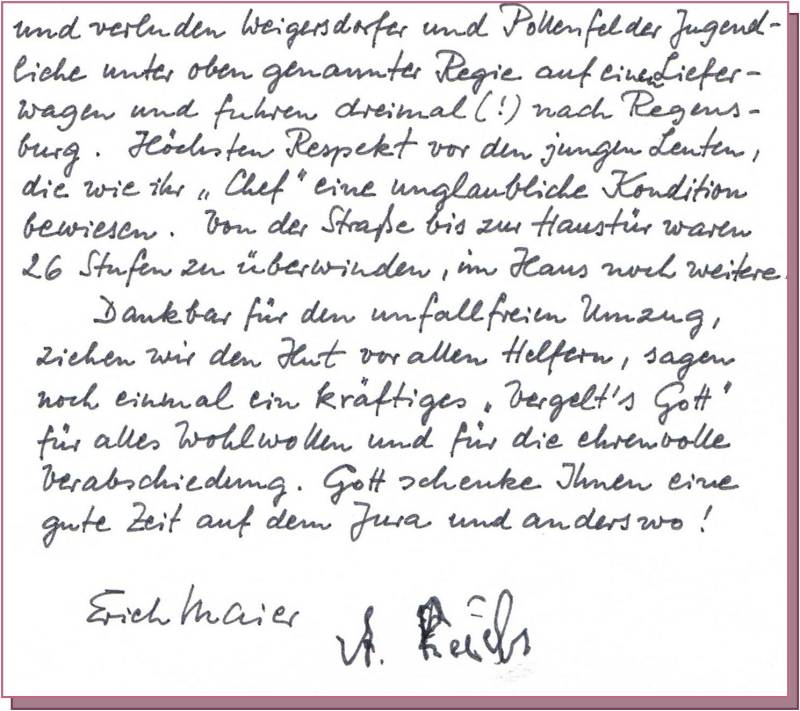 und verluden Weigersdorfer und Pollenfelder Jugend-
liche unter oben genannter Regie auf einen Liefer-
wagen und fuhren dreimal (!) nach Regens-
burg. Höchsten Respekt vor den jungen Leuten,
die wie ihr „Chef" eine unglaubliche Kondition
bewiesen. Von der Straße bis zur Haustür waren
26 Stufen zu überwinden, im Haus noch weitere.
Dankbar für den unfallfreien Umzug,
ziehen wir den Hut vor allen Helfern, sagen
noch einmal ein kräftiges „Vergelt's Gott"
für alles Wohlwollen und für die ehrenvolle
Verabschiedung. Gott schenke Ihnen eine
gute Zeit auf dem Jura und anderswo!
Erich Maier
A.